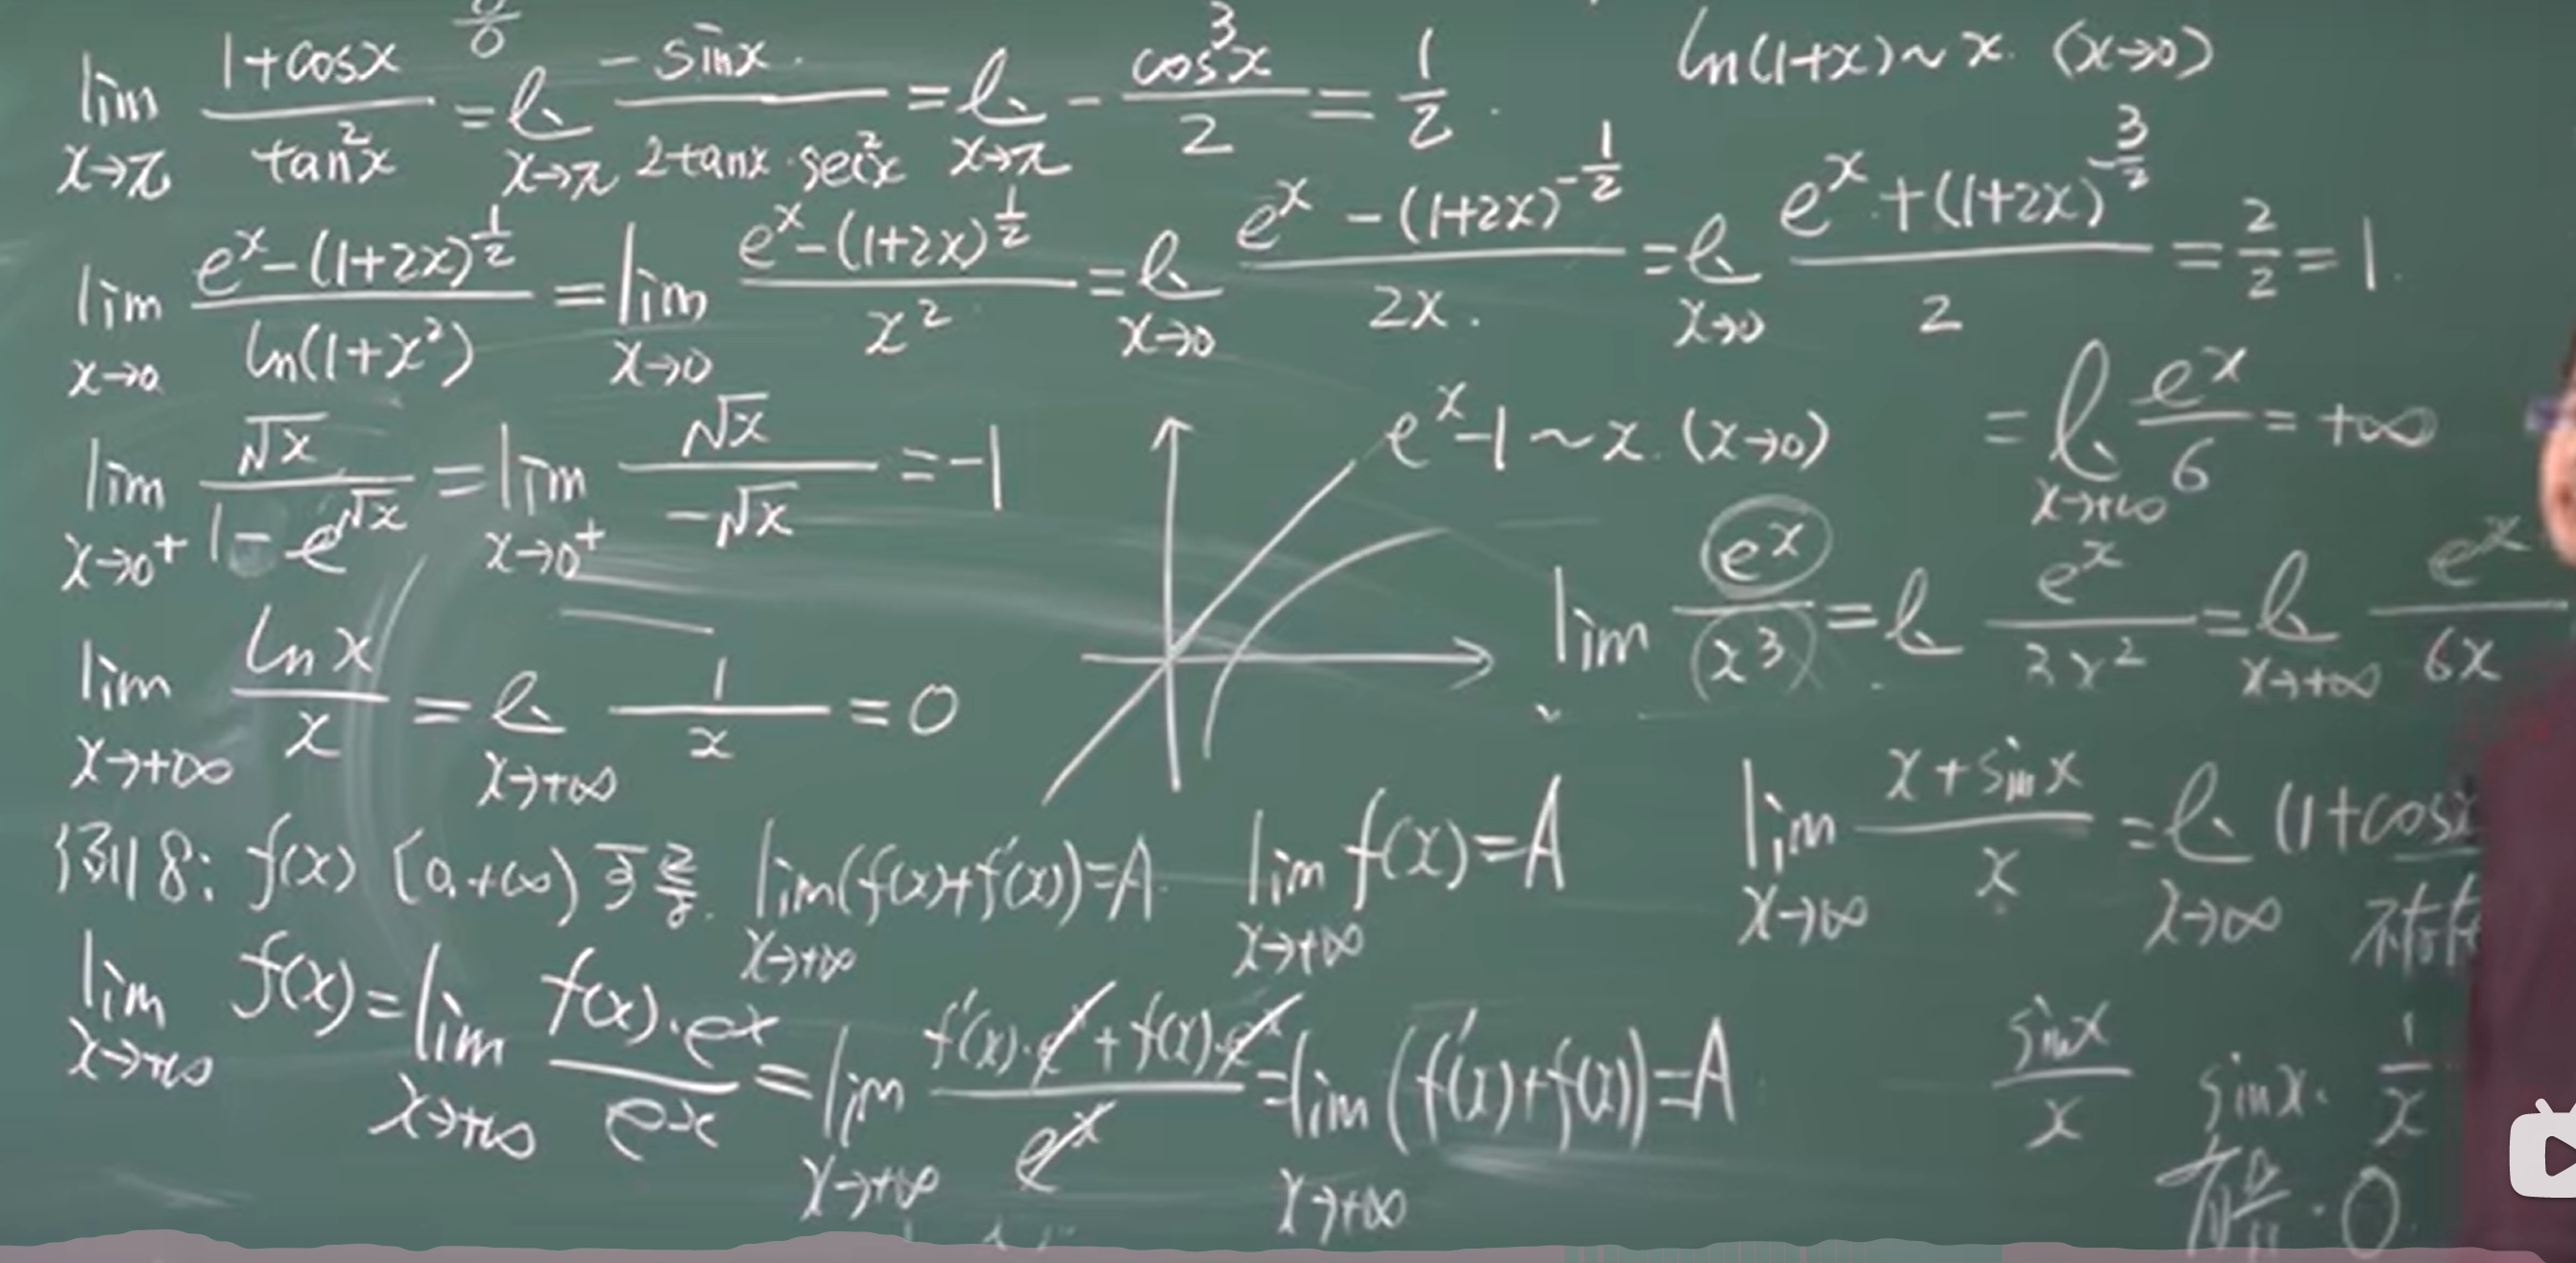 lim_{x→π} (1+cosx)/(tan²x) = (0/0) l_{x→π} (-sinx)/(2tanx·sec²x) = l_{x→π} - (cos³x)/2 = 1/2.
ln(1+x)~x. (x→0)
lim_{x→0} (e^x-(1+2x)^{1/2})/(ln(1+x²)) = lim_{x→0} (e^x-(1+2x)^{1/2})/(x²) = l_{x→0} (e^x-(1+2x)^{-1/2})/(2x). = l_{x→0} (e^x+(1+2x)^{-3/2})/2 = 2/2 = 1.
lim_{x→0⁺} √x/(1-e^{√x}) = lim_{x→0⁺} √x/(-√x) = -1
e^x-1~x. (x→0)
= l_{x→+∞} e^x/6 = +∞
lim e^x/x³ = l e^x/(3x²) = l_{x→+∞} e^x/(6x)
lim_{x→+∞} (lnx)/x = l_{x→+∞} 1/x = 0
例8: f(x) [0,+∞) 可导. lim_{x→+∞}(f(x)+f'(x))=A. lim_{x→+∞} f(x)=A
lim_{x→∞} (x+sinx)/x = l_{x→∞} (1+cosx
不存在
lim_{x→+∞} f(x) = lim_{x→+∞} (f(x)·e^x)/(e^x) = lim_{x→+∞} (f'(x)·e^x+f(x)·e^x)/(e^x) = lim_{x→+∞} (f'(x)+f(x)) = A
sinx/x sinx·1/x
有界·0